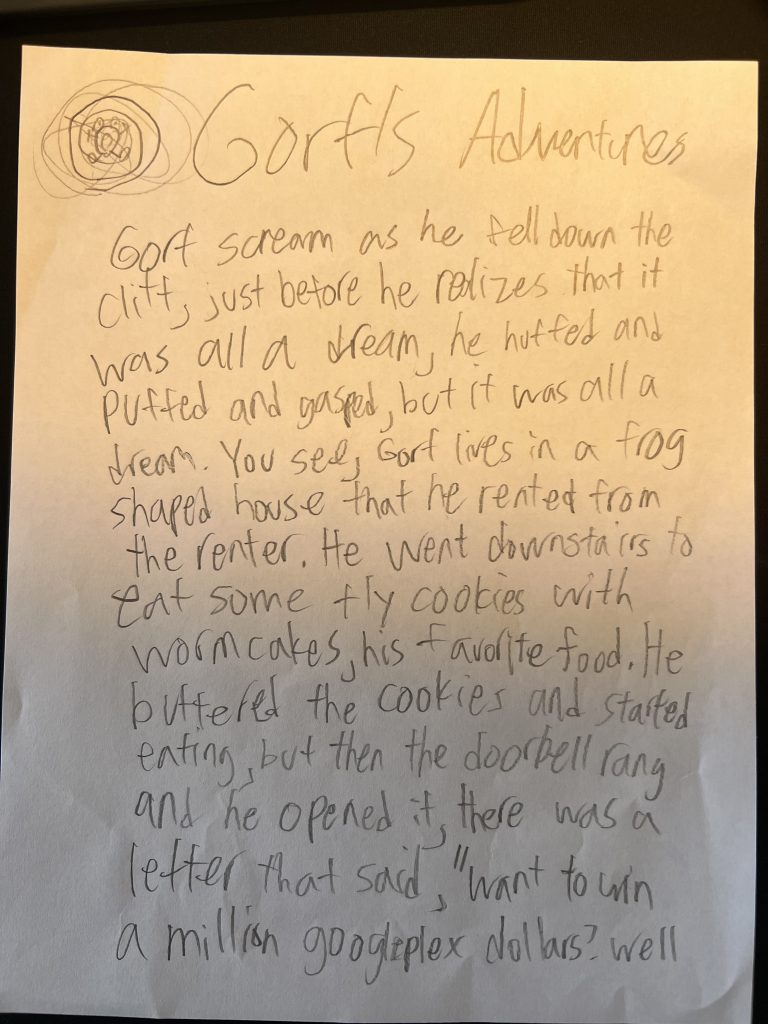 Gorf's Adventures
Gorf scream as he fell down the
cliff, just before he realizes that it
was all a dream, he huffed and
puffed and gasped, but it was all a
dream. You see, Gorf lives in a frog
shaped house that he rented from
the renter. He went downstairs to
eat some fly cookies with
wormcakes, his favorite food. He
buttered the cookies and started
eating, but then the doorbell rang
and he opened it, there was a
letter that said, "want to win
a million googleplex dollars? well